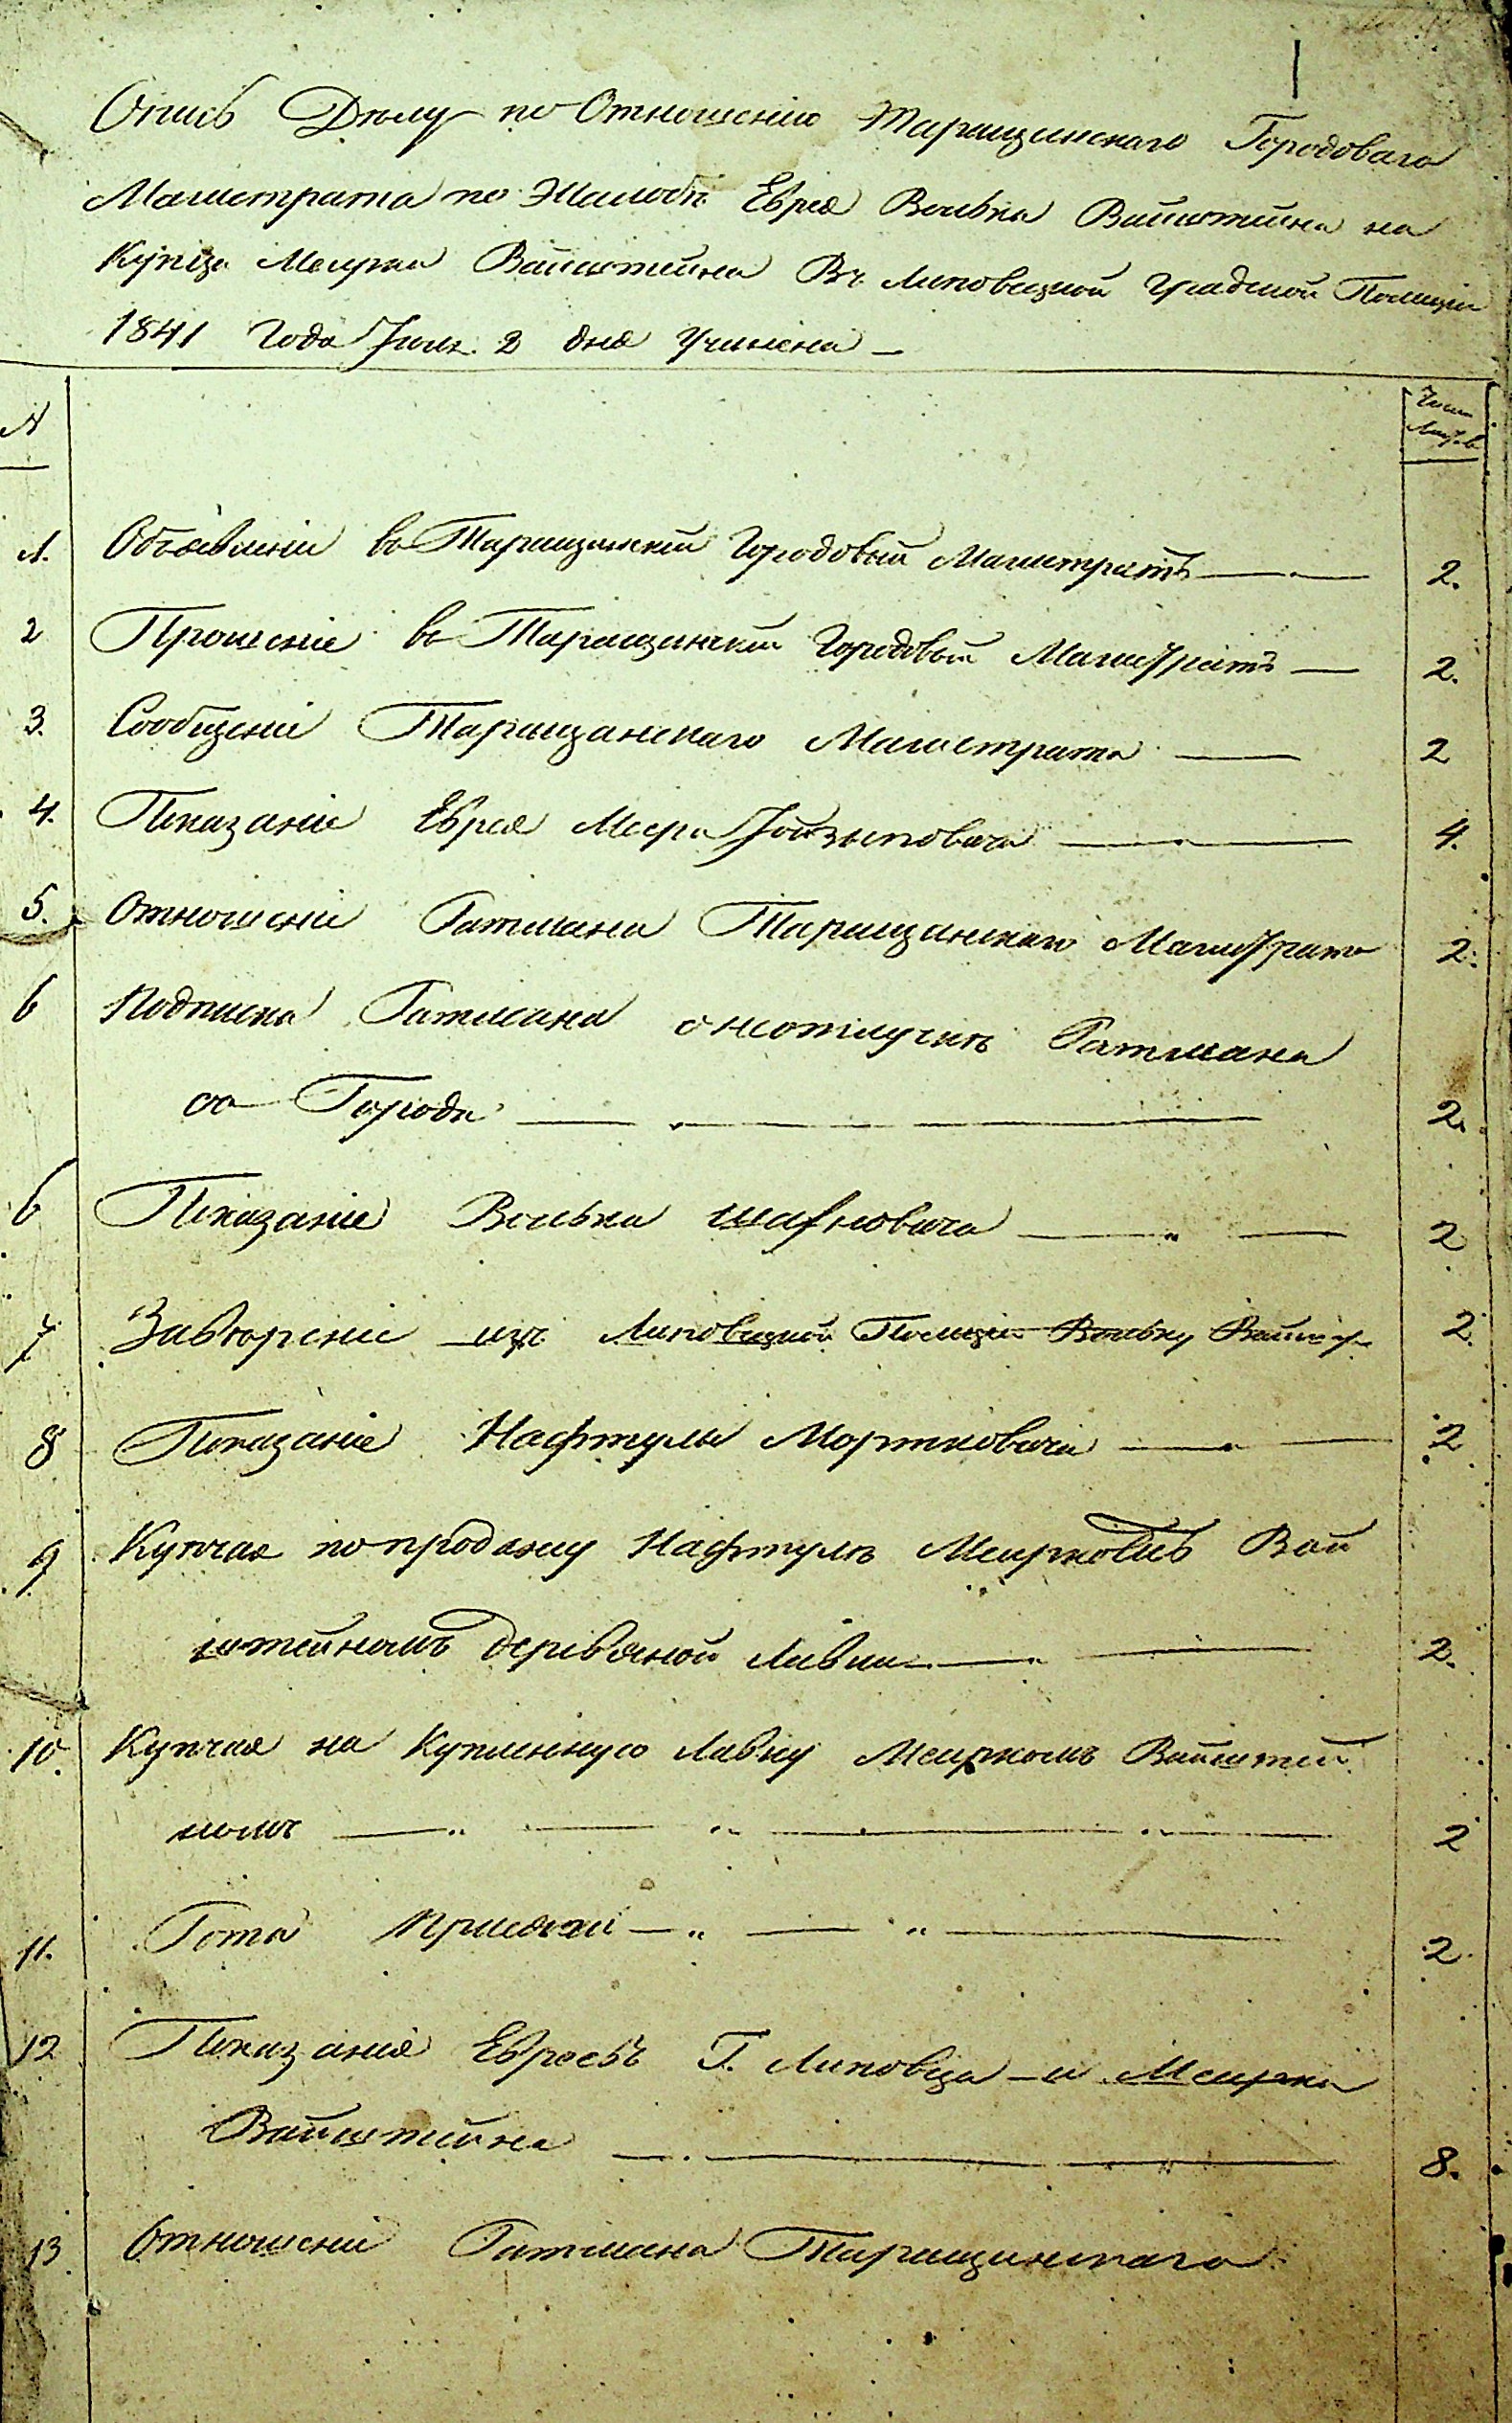 Опись Дѣлу по Отношенію Таращанскаго Городоваго
Магистрата по Жалобѣ Еврея Волька Вайнштейна на
Купца Меерка Вайнштейна Въ Липовецкой Градской Полиціи
1841 Года Іюля 2 дня Учинена —
№
Число Листовъ
1. Объявленіе во Таращанскій Городовый Магистратъ 2.
2 Прошеніе во Таращанскій Городовый Магистратъ 2.
3. Сообщеніе Таращанскаго Магистрата 2
4. Показаніе Еврея Меера 4.
5. Отношеніе Ратмана Таращанскаго Магистрата 2.
6 Подписка Ратмана о неотлучкѣ Ратмана
со Города 2.
6 Показаніе Волька 2
7 изъ Липовецкой Полиціи Вольку 2.
8 Показаніе Нафтулы Мортковича 2
9 Купчая по продажу Нафтулѣ Меерковъ Вай
штейномъ деревяной Лавки 2.
10. Купчая на Купленную Лавку Меиркомъ Вайнштей
номъ 2
11. 2
12 Показанія Евреевъ Г. Липовца и Меирка
Вайнштейна 8.
13 Отношеніе Ратмана Таращанскаго